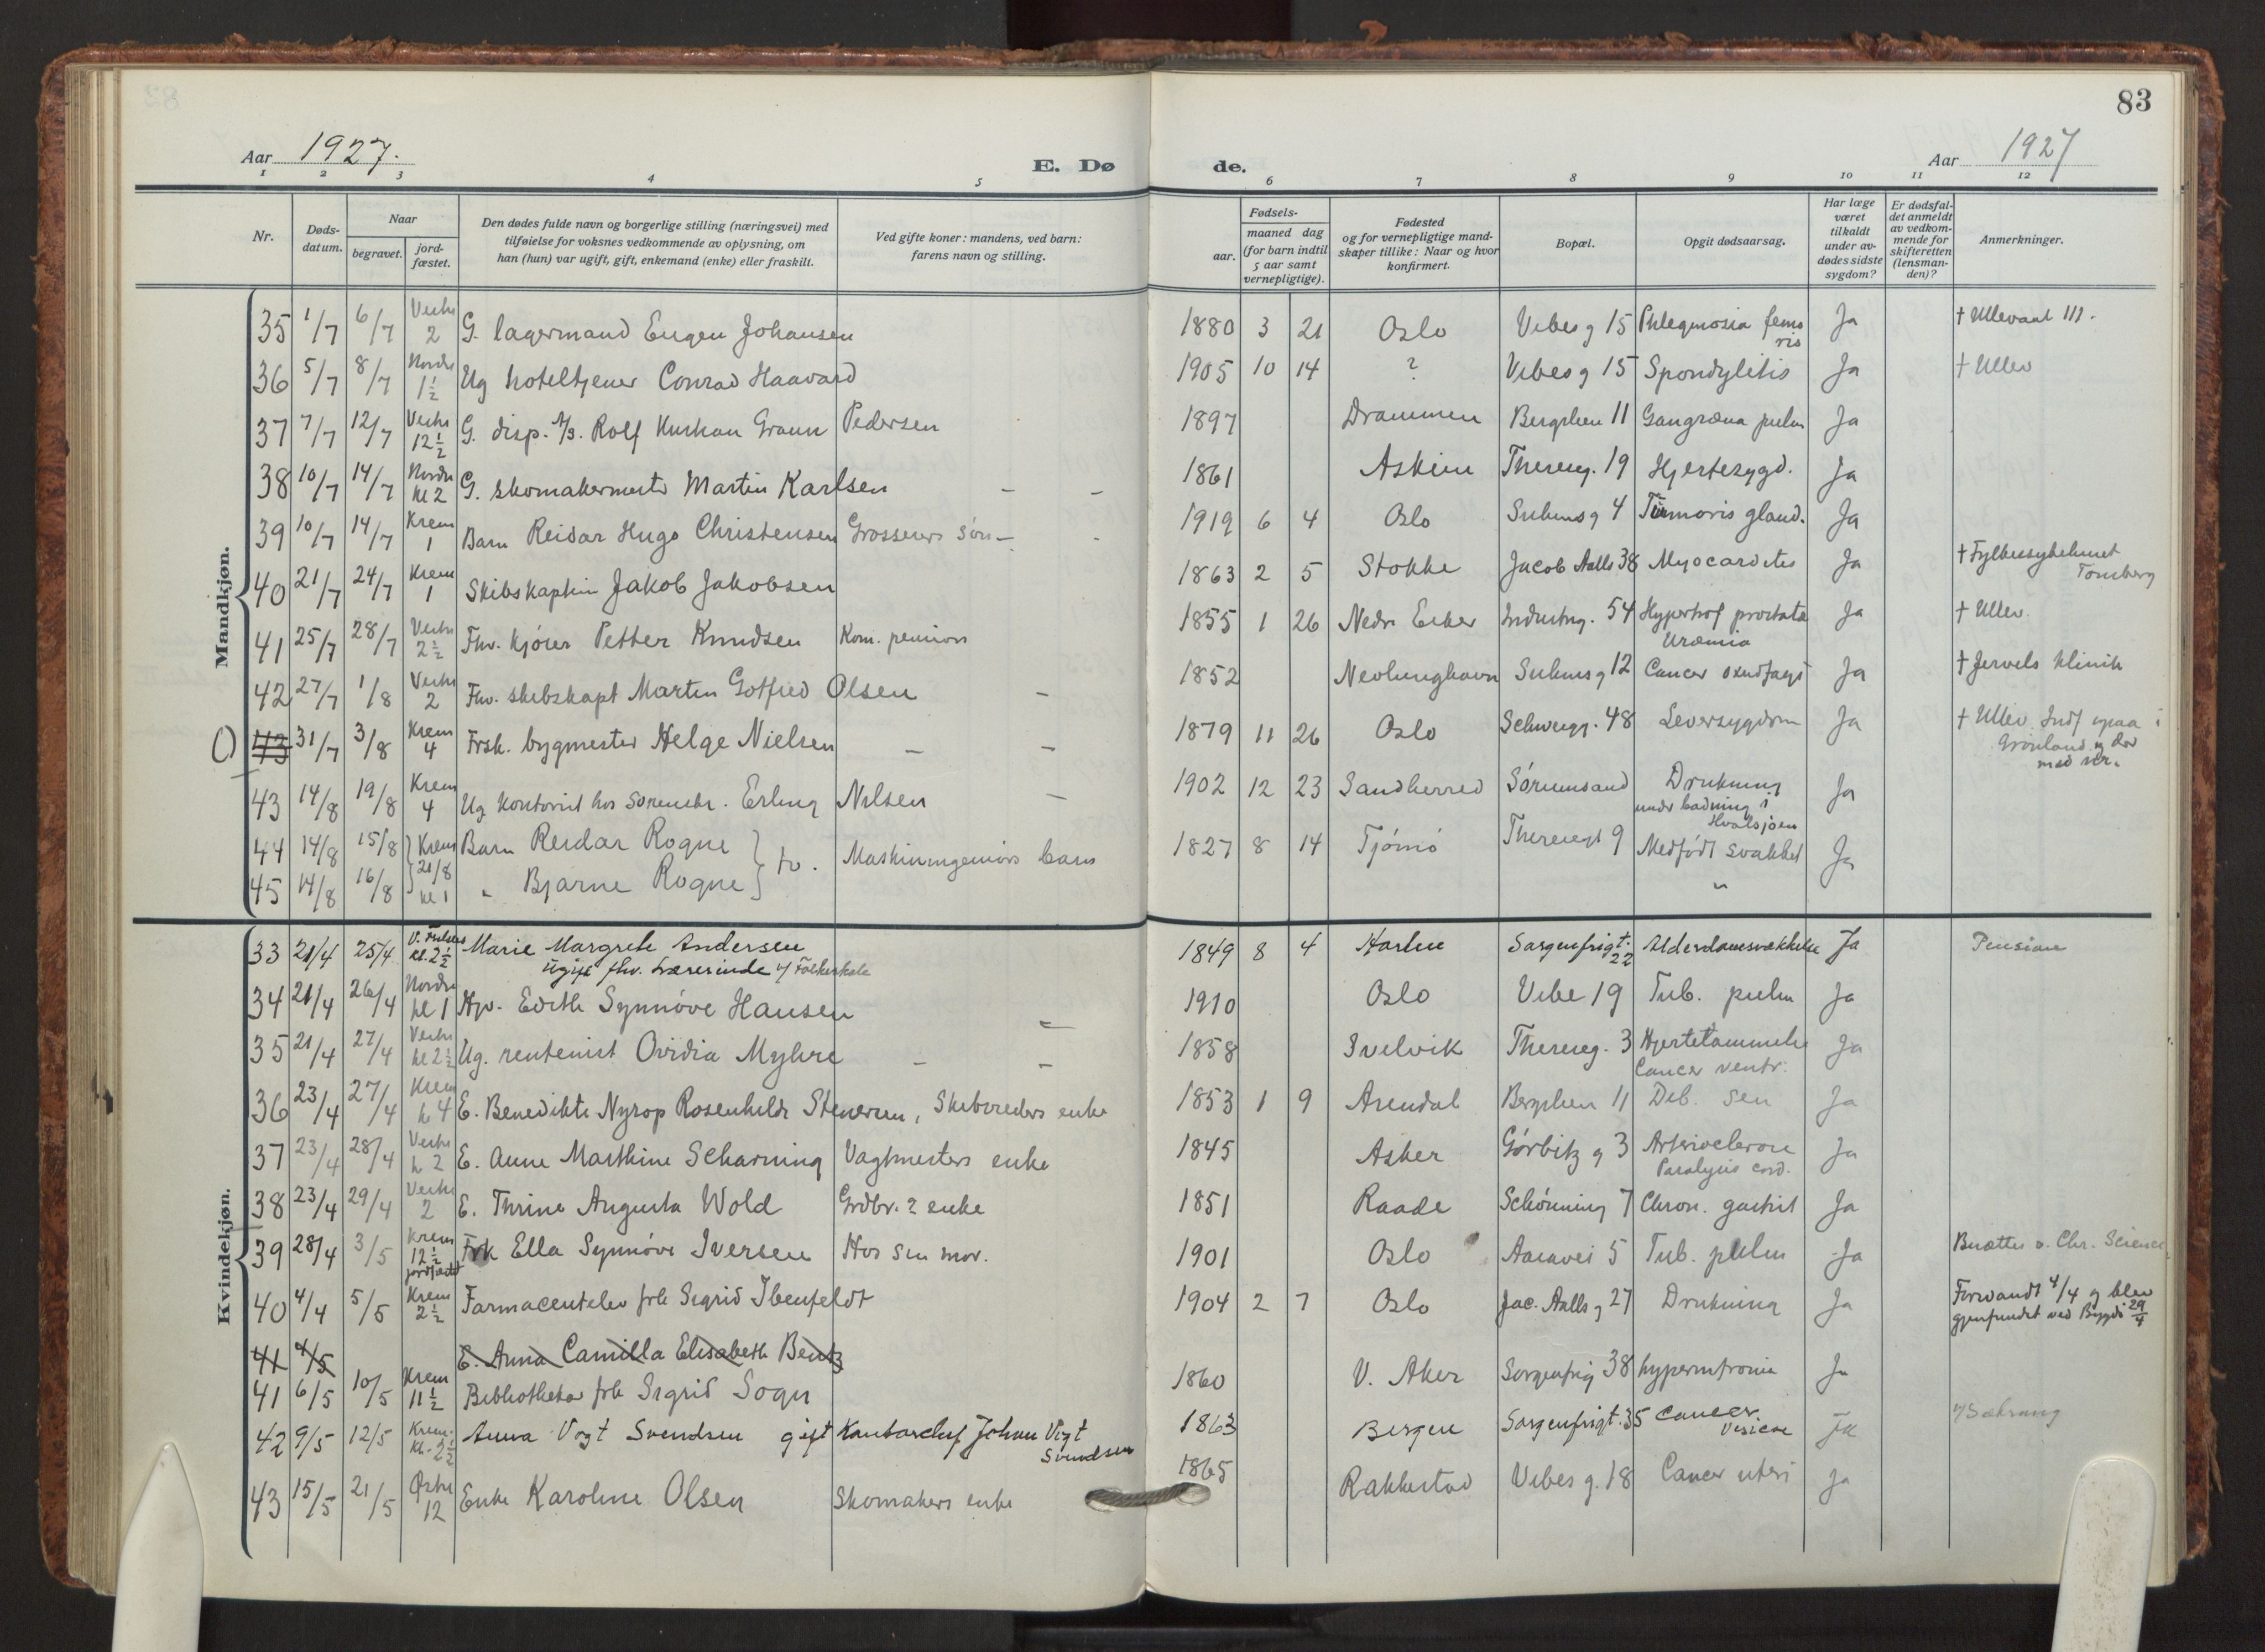 83
Aar 1927.
E. Døde.
Aar 1927
1 2 3 4 5 6 7 8 9 10 11 12
Nr.
Døds-datum.
Naar
begravet.
jord-fæstet.
Den dødes fulde navn og borgerlige stilling (næringsvei) med
tilføielse for voksnes vedkommende av oplysning, om
han (hun) var ugift, gift, enkemand (enke) eller fraskilt.
Ved gifte koner: mandens, ved barn:
farens navn og stilling.
Fødsels-
aar.
maaned dag
(for barn indtil
5 aar samt
vernepligtige).
Fødested
og for vernepligtige mand-
skaper tillike: Naar og hvor
konfirmert.
Bopæl.
Opgit dødsaarsag.
Har læge
været
tilkaldt
under av-
dødes sidste
sygdom?
Er dødsfal-
det anmeldt
av vedkom-
mende for
skifteretten
(lensman-
den)?
Anmerkninger.
Mandkjøn.
35 1/7 6/7 Vestre 2 G. lagermand Eugen Johansen 1880 3 21 Oslo Vibesg 15 Phlegmosia femoris Ja † Ullevaal III.
36 5/7 8/7 Nordre 1½ Ug hoteltjener Conrad Haavard 1905 10 14 ? Vibesg 15 Spondylitis Ja † Ullev
37 7/7 12/7 Vestre 12½ G. disp. A/S. Rolf Graun Pedersen 1897 Drammen Bergslien 11 Gangræna pulm Ja
38 10/7 14/7 Nordre kl 2 G. skomakermester Martin Karlsen – – 1861 Askim Thereseg. 19 Hjertesygd. Ja
39 10/7 14/7 Krem 1 Barn Reidar Hugo Christensen Grosserers søn – 1919 6 4 Oslo Suhmsg 4 Tumoris gland. Ja
40 21/7 24/7 Krem 1 Skibskaptein Jakob Jakobsen 1863 2 5 Stokke Jacob Aalls 38 Myocarditis Ja † Fylkessykehuset Tønsberg
41 25/7 28/7 Vestre 2½ Fhv. kjører Petter Knudsen Kom. pensions 1855 1 26 Nedre Eiker Industrig. 54 Hypertrof prostata Uræmia Ja † Ullev.
42 27/7 1/8 Vestre 2 Fhv. skibskapt Martin Gotfred Olsen – 1852 Nevlunghavn Suhmsg 12 Cancer Ja † Jervels klinik
43 31/7 3/8 Krem 4 Frsk. bygmester Helge Nielsen – – 1879 11 26 Oslo Schweigg. 48 Leversygdom Ja † Ullev. Indf ogsaa i Grønland og der med nr.
43 14/8 19/8 Krem 4 Ug kontorist hos sorenskr. Erling Nilsen – 1902 12 23 Sandherred Sørumsand Drukning under badning i Hvalsjøen Ja
44 14/8 15/8 Krem 21/8 kl 1 Barn Reidar Rogne } tv. Maskiningeniørs barn 1827 8 14 Tjømø Theresegt 9 Medfødt svakhet Ja
45 14/8 16/8 " Bjarne Rogne "
Kvindekjøn.
33 21/4 25/4 V. Frelsers kl. 2½ Marie Margrete Andersen 1849 8 4 Sorgenfrigt. 22 Alderdomsvækkelse Ja Pension
ugift fhv. Lærerinde v/ Folkeskole
34 21/4 26/4 Nordre kl 1 Hjv. Edith Synnøve Hansen – 1910 Oslo Vibe 19 Tub. pulm Ja
35 21/4 27/4 Vestre kl 2½ Ug. rentenist Ovidia Myhre – – 1858 Svelvik Thereseg. 3 Hjertelammelse Cancer ventr. Ja
36 23/4 27/4 Krem k 4 E. Benedikte Nyrop Rosenkilde Stenersen, Skibsreders enke 1853 1 9 Arendal Bergslien 11 Deb. sen Ja
37 23/4 28/4 Vestre k 2 E. Anne Marthine Scharning Vagtmesters enke 1845 Asker Gørbitz g 3 Arteriosclerose Paralysis cord. Ja
38 23/4 29/4 Vestre 2 E. Thrine Augusta Wold Grdbr. ? enke 1851 Raade Schønning 7 Chron. gastrit Ja
39 28/4 3/5 Krem 12½ jordfæstet Frk Ella Synnøve Iversen Hos sin mor. 1901 Oslo Aaravei 5 Tub. pulm Ja v. Chr. Science
40 4/4 5/5 Krem 2½ Farmacentelev frk Sigrid Ibenfeldt 1904 2 7 Oslo Jac. Aalls g 27 Drukning Ja Forsvandt 4/4 og blev gjenfundet ved Bygdø 29/4
41 4/5 E. Anna Camilla Elisabeth Bentz
41 6/5 10/5 Krem 11½ Bibliothekar frk Sigrid Sogn 1860 V. Aker Sorgenfrig 38 Ja
42 9/5 12/5 Krem. kl. 2½ Anna Vogt Svendsen gift Kontorchef Johan Vogt Svendsen 1863 Bergen Sorgenfrigt. 35 Cancer Vesicae Ja
43 15/5 21/5 Østre 12 Enke Karoline Olsen Skomakers enke 1865 Rakkestad Vibesg. 18 Cancer uteri Ja